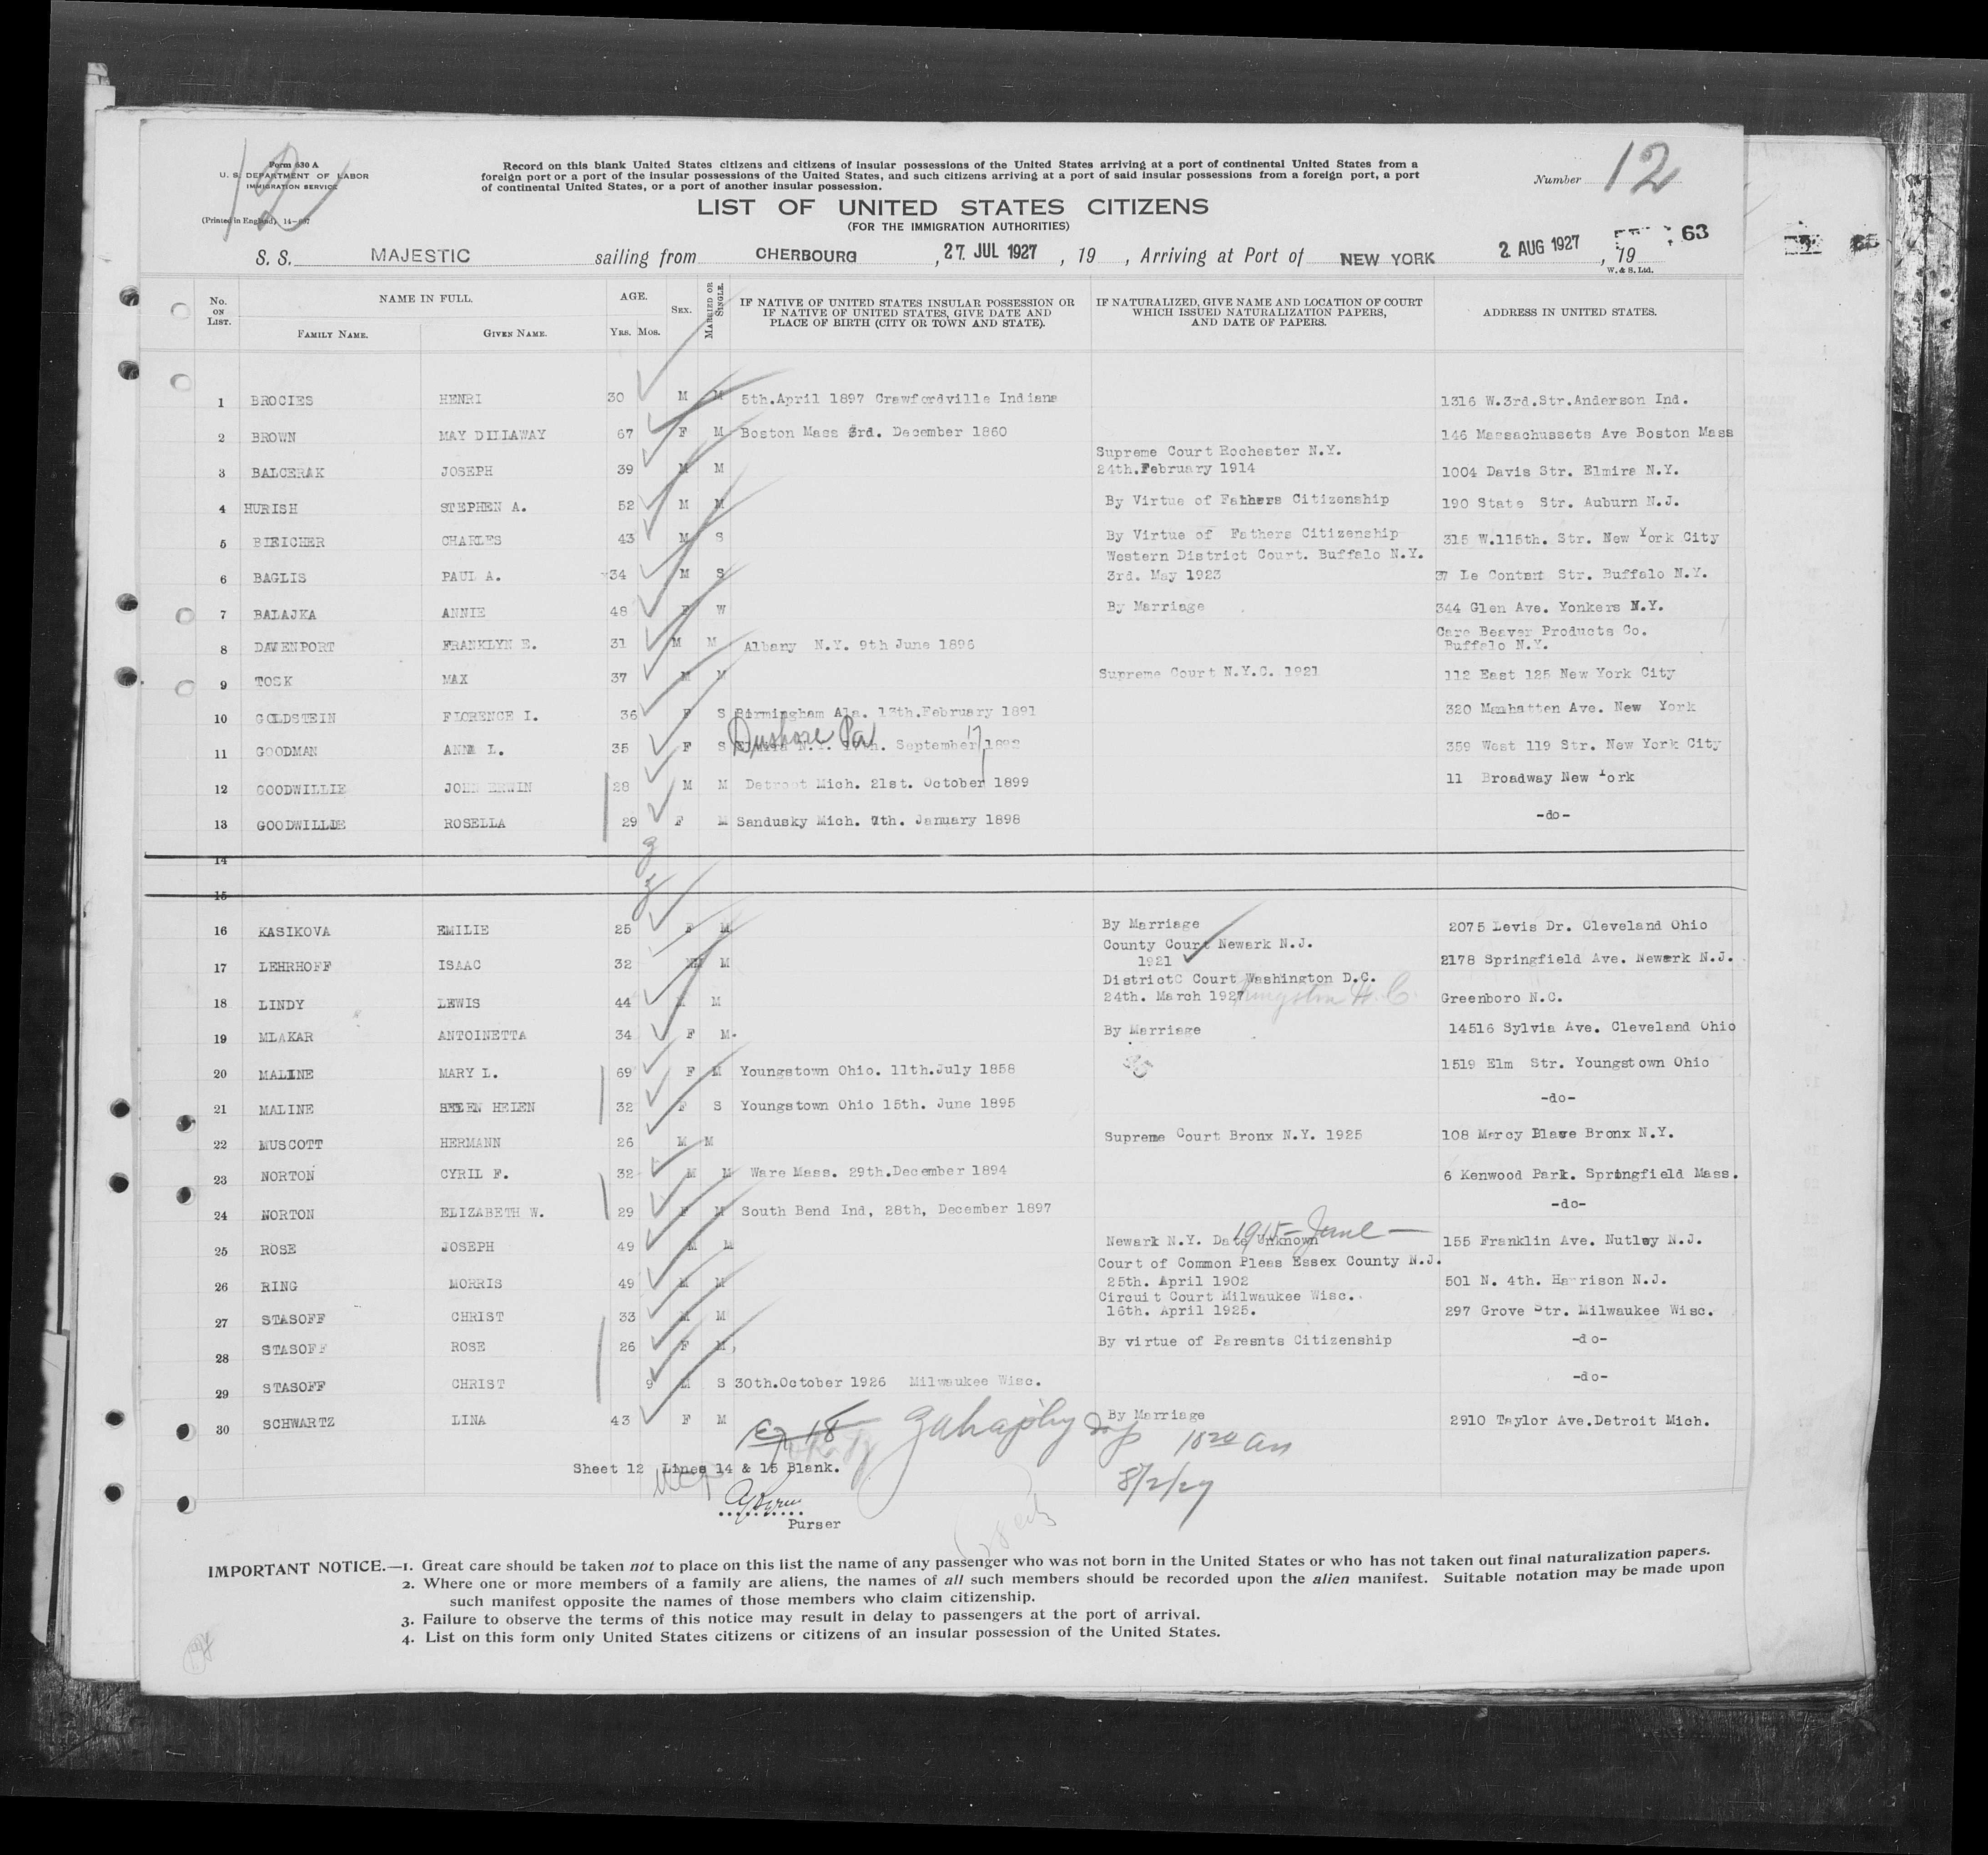 12
Form 630 A
U. S. DEPARTMENT OF LABOR
IMMIGRATION SERVICE
(Printed in England) 14-687
Record on this blank United States citizens and citizens of insular possessions of the United States arriving at a port of continental United States from a
foreign port or a port of the insular possessions of the United States, and such citizens arriving at a port of said insular possessions from a foreign port, a port
of continental United States, or a port of another insular possession.
Number 12
LIST OF UNITED STATES CITIZENS
(FOR THE IMMIGRATION AUTHORITIES)
S. S. MAJESTIC sailing from CHERBOURG, 27 JUL 1927, 19 , Arriving at Port of NEW YORK 2 AUG 1927, 19 63
W. & S. Ltd.
No. ON LIST. NAME IN FULL. FAMILY NAME. GIVEN NAME. AGE. YRS. MOS. SEX. MARRIED OR SINGLE. IF NATIVE OF UNITED STATES INSULAR POSSESSION OR IF NATIVE OF UNITED STATES, GIVE DATE AND PLACE OF BIRTH (CITY OR TOWN AND STATE). IF NATURALIZED, GIVE NAME AND LOCATION OF COURT WHICH ISSUED NATURALIZATION PAPERS, AND DATE OF PAPERS. ADDRESS IN UNITED STATES.
1 BROCIES HENRI 30 M M 5th.April 1897 Crawfordville Indiana 1316 W.3rd.Str.Anderson Ind.
2 BROWN MAY DILLAWAY 67 F M Boston Mass 3rd. December 1860 146 Massachussets Ave Boston Mass
3 BALCERAK JOSEPH 39 M M Supreme Court Rochester N.Y. 24th.February 1914 1004 Davis Str. Elmira N.Y.
4 HURISH STEPHEN A. 52 M M By Virtue of Fathers Citizenship 190 State Str. Auburn N.J.
5 BIEICHER CHARLES 43 M S By Virtue of Fathers Citizenship 315 W.115th. Str. New York City
6 BAGLIS PAUL A. 34 M S Western District Court. Buffalo N.Y. 3rd. May 1923 37 Le Str. Buffalo N.Y.
7 BALAJKA ANNIE 48 F W By Marriage 344 Glen Ave. Yonkers N.Y.
8 DAVENPORT FRANKLYN E. 31 M M Albany N.Y. 9th June 1896 Care Beaver Products Co. Buffalo N.Y.
9 TOSK MAX 37 M M Supreme Court N.Y.C. 1921 112 East 125 New York City
10 GOLDSTEIN FLORENCE I. 36 F S Birmingham Ala. 13th.February 1891 320 Manhatten Ave. New York
Dushore Pa 17
11 GOODMAN ANNA L. 35 F S N.Y. September 1892 359 West 119 Str. New York City
12 GOODWILLIE JOHN ERWIN 28 M M Detroot Mich. 21st. October 1899 11 Broadway New York
13 GOODWILLIE ROSELLA 29 F M Sandusky Mich. 7th. January 1898 -do-
14
15
16 KASIKOVA EMILIE 25 F M By Marriage 2075 Levis Dr. Cleveland Ohio
17 LEHRHOFF ISAAC 32 M M County Court Newark N.J. 1921 2178 Springfield Ave. Newark N.J.
18 LINDY LEWIS 44 M M DistrictC Court Washington D.C. 24th. March 1927 Greenboro N.C.
19 MLAKAR ANTOINETTA 34 F M By Marriage 14516 Sylvia Ave. Cleveland Ohio
20 MALINE MARY L. 69 F M Youngstown Ohio. 11th.July 1858 1519 Elm Str. Youngstown Ohio
21 MALINE HELEN 32 F S Youngstown Ohio 15th. June 1895 -do-
22 MUSCOTT HERMANN 26 M M Supreme Court Bronx N.Y. 1925 108 Mercy Bronx N.Y.
23 NORTON CYRIL F. 32 M M Ware Mass. 29th.December 1894 6 Kenwood Park. Springfield Mass.
24 NORTON ELIZABETH W. 29 F M South Bend Ind, 28th, December 1897 -do-
1915 - June -
25 ROSE JOSEPH 49 M M Newark N.Y. Date Unknown 155 Franklin Ave. Nutley N.J.
26 RING MORRIS 49 M M Court of Common Pleas Essex County N.J. 25th. April 1902 501 N. 4th. Harrison N.J.
27 STASOFF CHRIST 33 M M Circuit Court Milwaukee Wisc. 16th. April 1925. 297 Grove Str. Milwaukee Wisc.
28 STASOFF ROSE 26 F M By virtue of Paresnts Citizenship -do-
29 STASOFF CHRIST 9 M S 30th.October 1926 Milwaukee Wisc. -do-
30 SCHWARTZ LINA 43 F M By Marriage 2910 Taylor Ave.Detroit Mich.
Insp 10 20 am
Sheet 12 Lines 14 & 15 Blank.
8/2/27
Purser
IMPORTANT NOTICE.—1. Great care should be taken not to place on this list the name of any passenger who was not born in the United States or who has not taken out final naturalization papers.
2. Where one or more members of a family are aliens, the names of all such members should be recorded upon the alien manifest. Suitable notation may be made upon
such manifest opposite the names of those members who claim citizenship.
3. Failure to observe the terms of this notice may result in delay to passengers at the port of arrival.
4. List on this form only United States citizens or citizens of an insular possession of the United States.